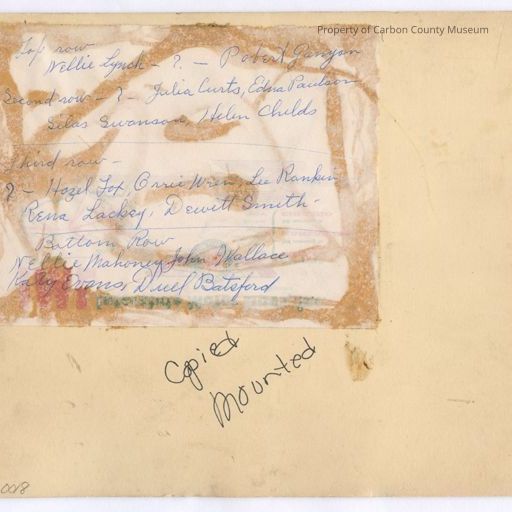 Property of Carbon County Museum
Top row
Nellie Lynch - ?. - Robert Ganyon
Second row - ? - Julia Curts, Edna Paulson
Silas Swanson, Helen Childs
Third row -
? - Hazel Fox, Orrie Wren, Lee Rankin
Rena Lackey, Dewitt Smith -
Bottom Row
Nellie Mahoney John Wallace
Katy Evans, Duel Batsford
Copied
Mounted
0018